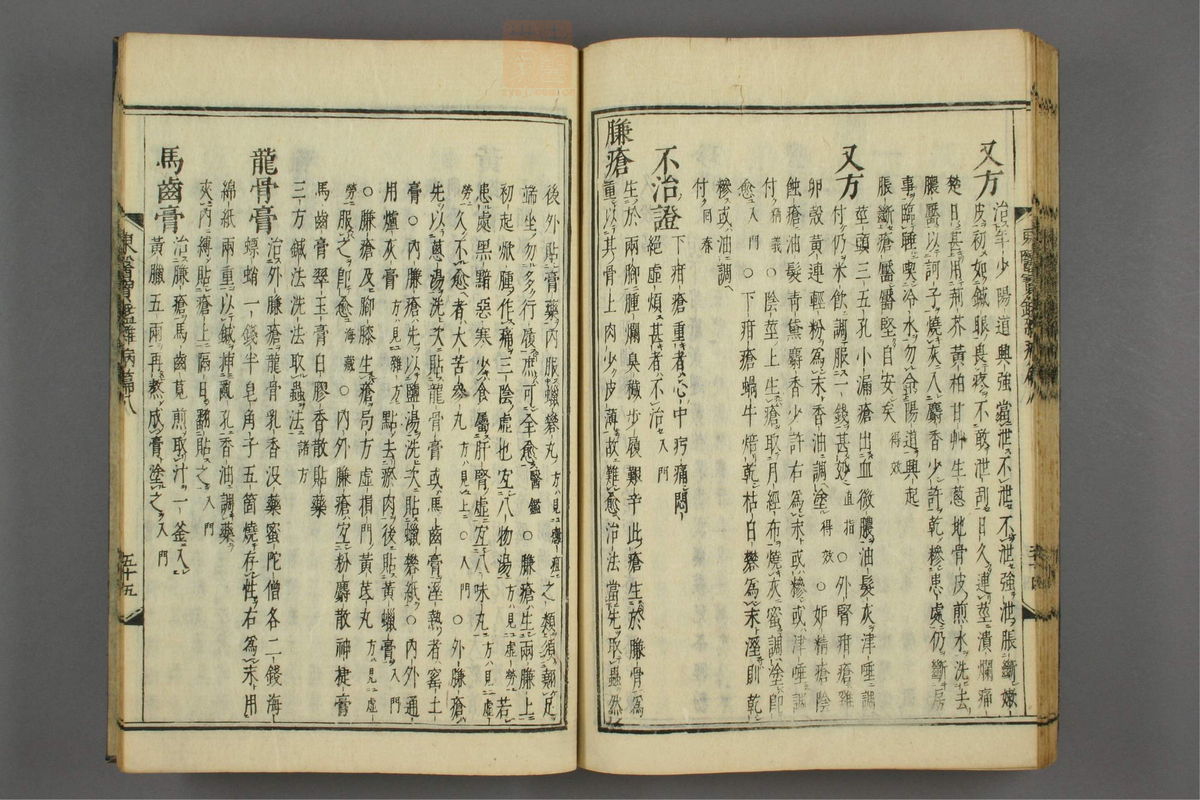 又方 治年少陽道興強當泄不泄不泄強泄脹斷嫩
皮初如鍼眼畏疼不敢泄刮日久連莖潰爛痛
楚日甚用荊芥黃柏甘艸生葱地骨皮煎水洗去
膿靨以訶子燒灰入麝香少許乾糝患處仍斷房
事臨睡喫冷水勿令陽道興起
脹斷瘡靨靨堅自安矣 得效
又方 莖頭三五孔小漏瘡出血微膿油髮灰津唾調
付仍米飲調服一錢甚妙 直指 ○外腎疳瘡雞
卵殼黃連輕粉爲末香油調塗 得效 ○妬精瘡陰
蝕瘡油髮青黛麝香少許右爲末或糝或津唾調
付 精義 ○陰莖上生瘡取月經布燒灰蜜調塗卽
愈 入門 ○下疳瘡蝸牛焙乾枯白礬爲末溼則乾
糝或油調
付 回春
不治證 下疳瘡重者心中疞痛悶
絕虛煩甚者不治 入門
臁瘡 生於兩脚腫爛臭穢步履艱辛此瘡生於臁骨爲
重以其骨上肉少皮薄故難愈治法當先取蟲然
後外貼膏藥內服蠟礬丸 方見癰疽 之類須翹足
端坐勿多行履庶可全愈 醫鑑 ○臁瘡生兩臁上
初起焮腫作痛三陰虛也宜八物湯 方見虛勞 若
患處黑黯惡寒少食屬肝腎虛宜八味丸 方見虛
勞 久不愈者大苦參丸 方見上 ○入門 ○外臁瘡
先以葱湯洗次貼龍骨膏或馬齒膏溼熱者窑土
膏○內臁瘡先以鹽湯洗次貼蠟礬紙○內外通
用爐灰膏 方見雜方 點去瘀肉後貼黃蠟膏 入門
○臁瘡及脚膝生瘡局方虛損門黃芪丸 方見虛
勞 服之卽愈 海藏 ○內外臁瘡宜粉麝散神捷膏
馬齒膏翠玉膏白膠香散貼藥
三方鍼法洗法取蟲法 諸方
龍骨膏 治外臁瘡龍骨乳香沒藥蜜陀僧各二錢海
螵蛸一錢半皂角子五箇燒存性右爲末用
綿紙兩重以鍼揷亂孔香油調藥
夾內縛貼瘡上隔日翻貼之 入門
馬齒膏 治臁瘡馬齒莧煎取汁一釜入
黃臘五兩再熬成膏塗之 入門
東醫寶鑑雜病篇八
五十五